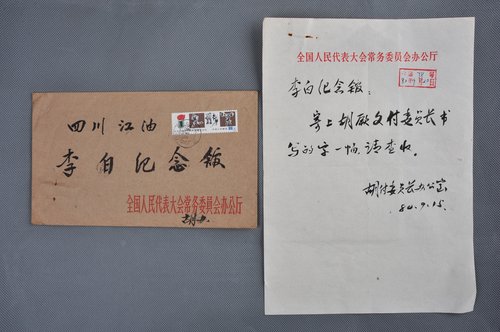 四川江油
李白纪念馆
全国人民代表大会常务委员会办公厅
全国人民代表大会常务委员会办公厅
李白纪念馆：
寄上胡厥文付委员长书
写的字一幅，请查收。
胡付委员长办公室
84.9.15.